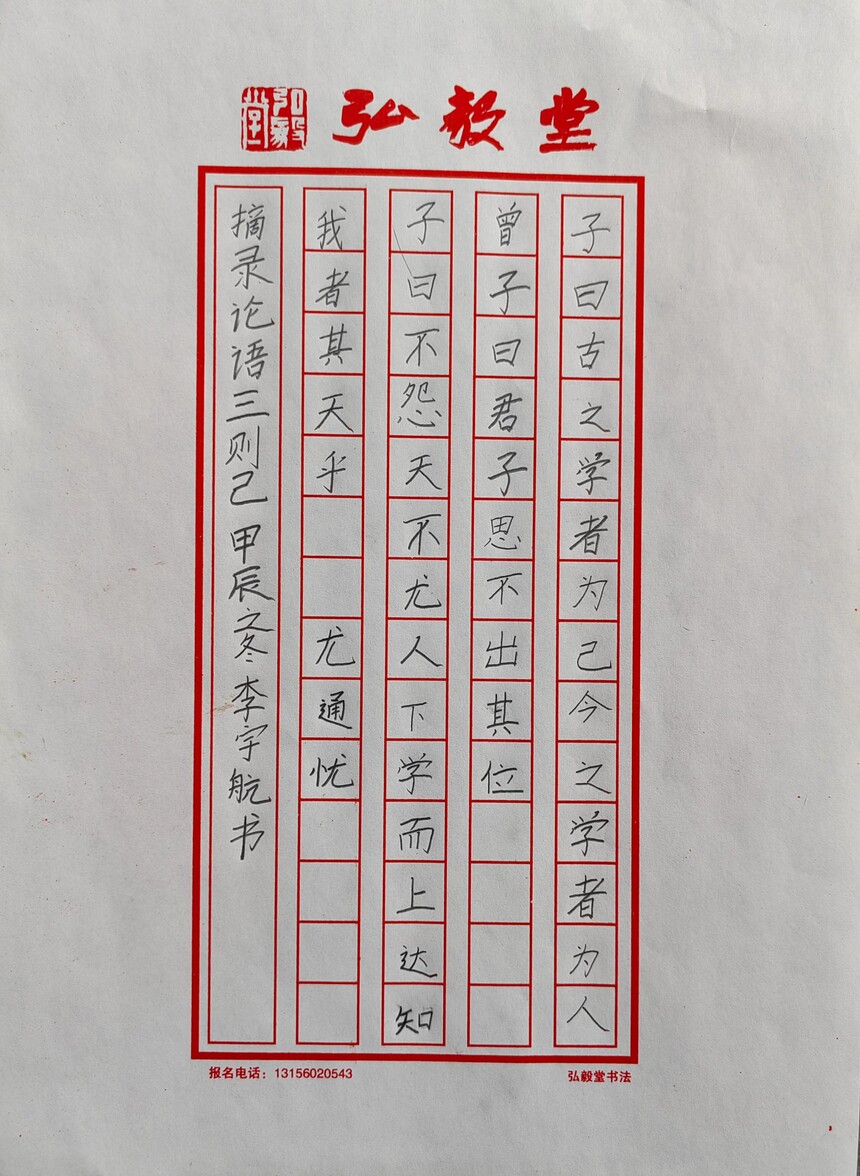 弘毅堂
弘毅堂
子曰古之学者为己今之学者为人
曾子曰君子思不出其位
子曰不怨天不尤人下学而上达知
我者其天乎 尤通忧
摘录论语三则己 甲辰之冬 李宇航书
报名电话：13156020543
弘毅堂书法